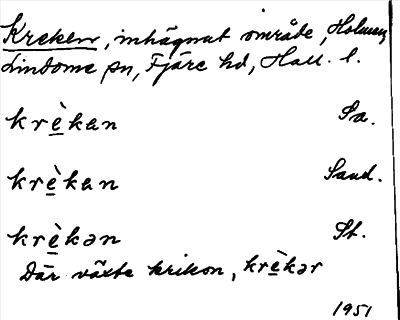 Kreken, inhägnat område, Holmen,
Lindome sn, Fjäre hd, Hall. l.
krè̱kan Sa.
krè̱kan Sand.
krè̱kən St.
Där växte krikon, krè̱kər
1951